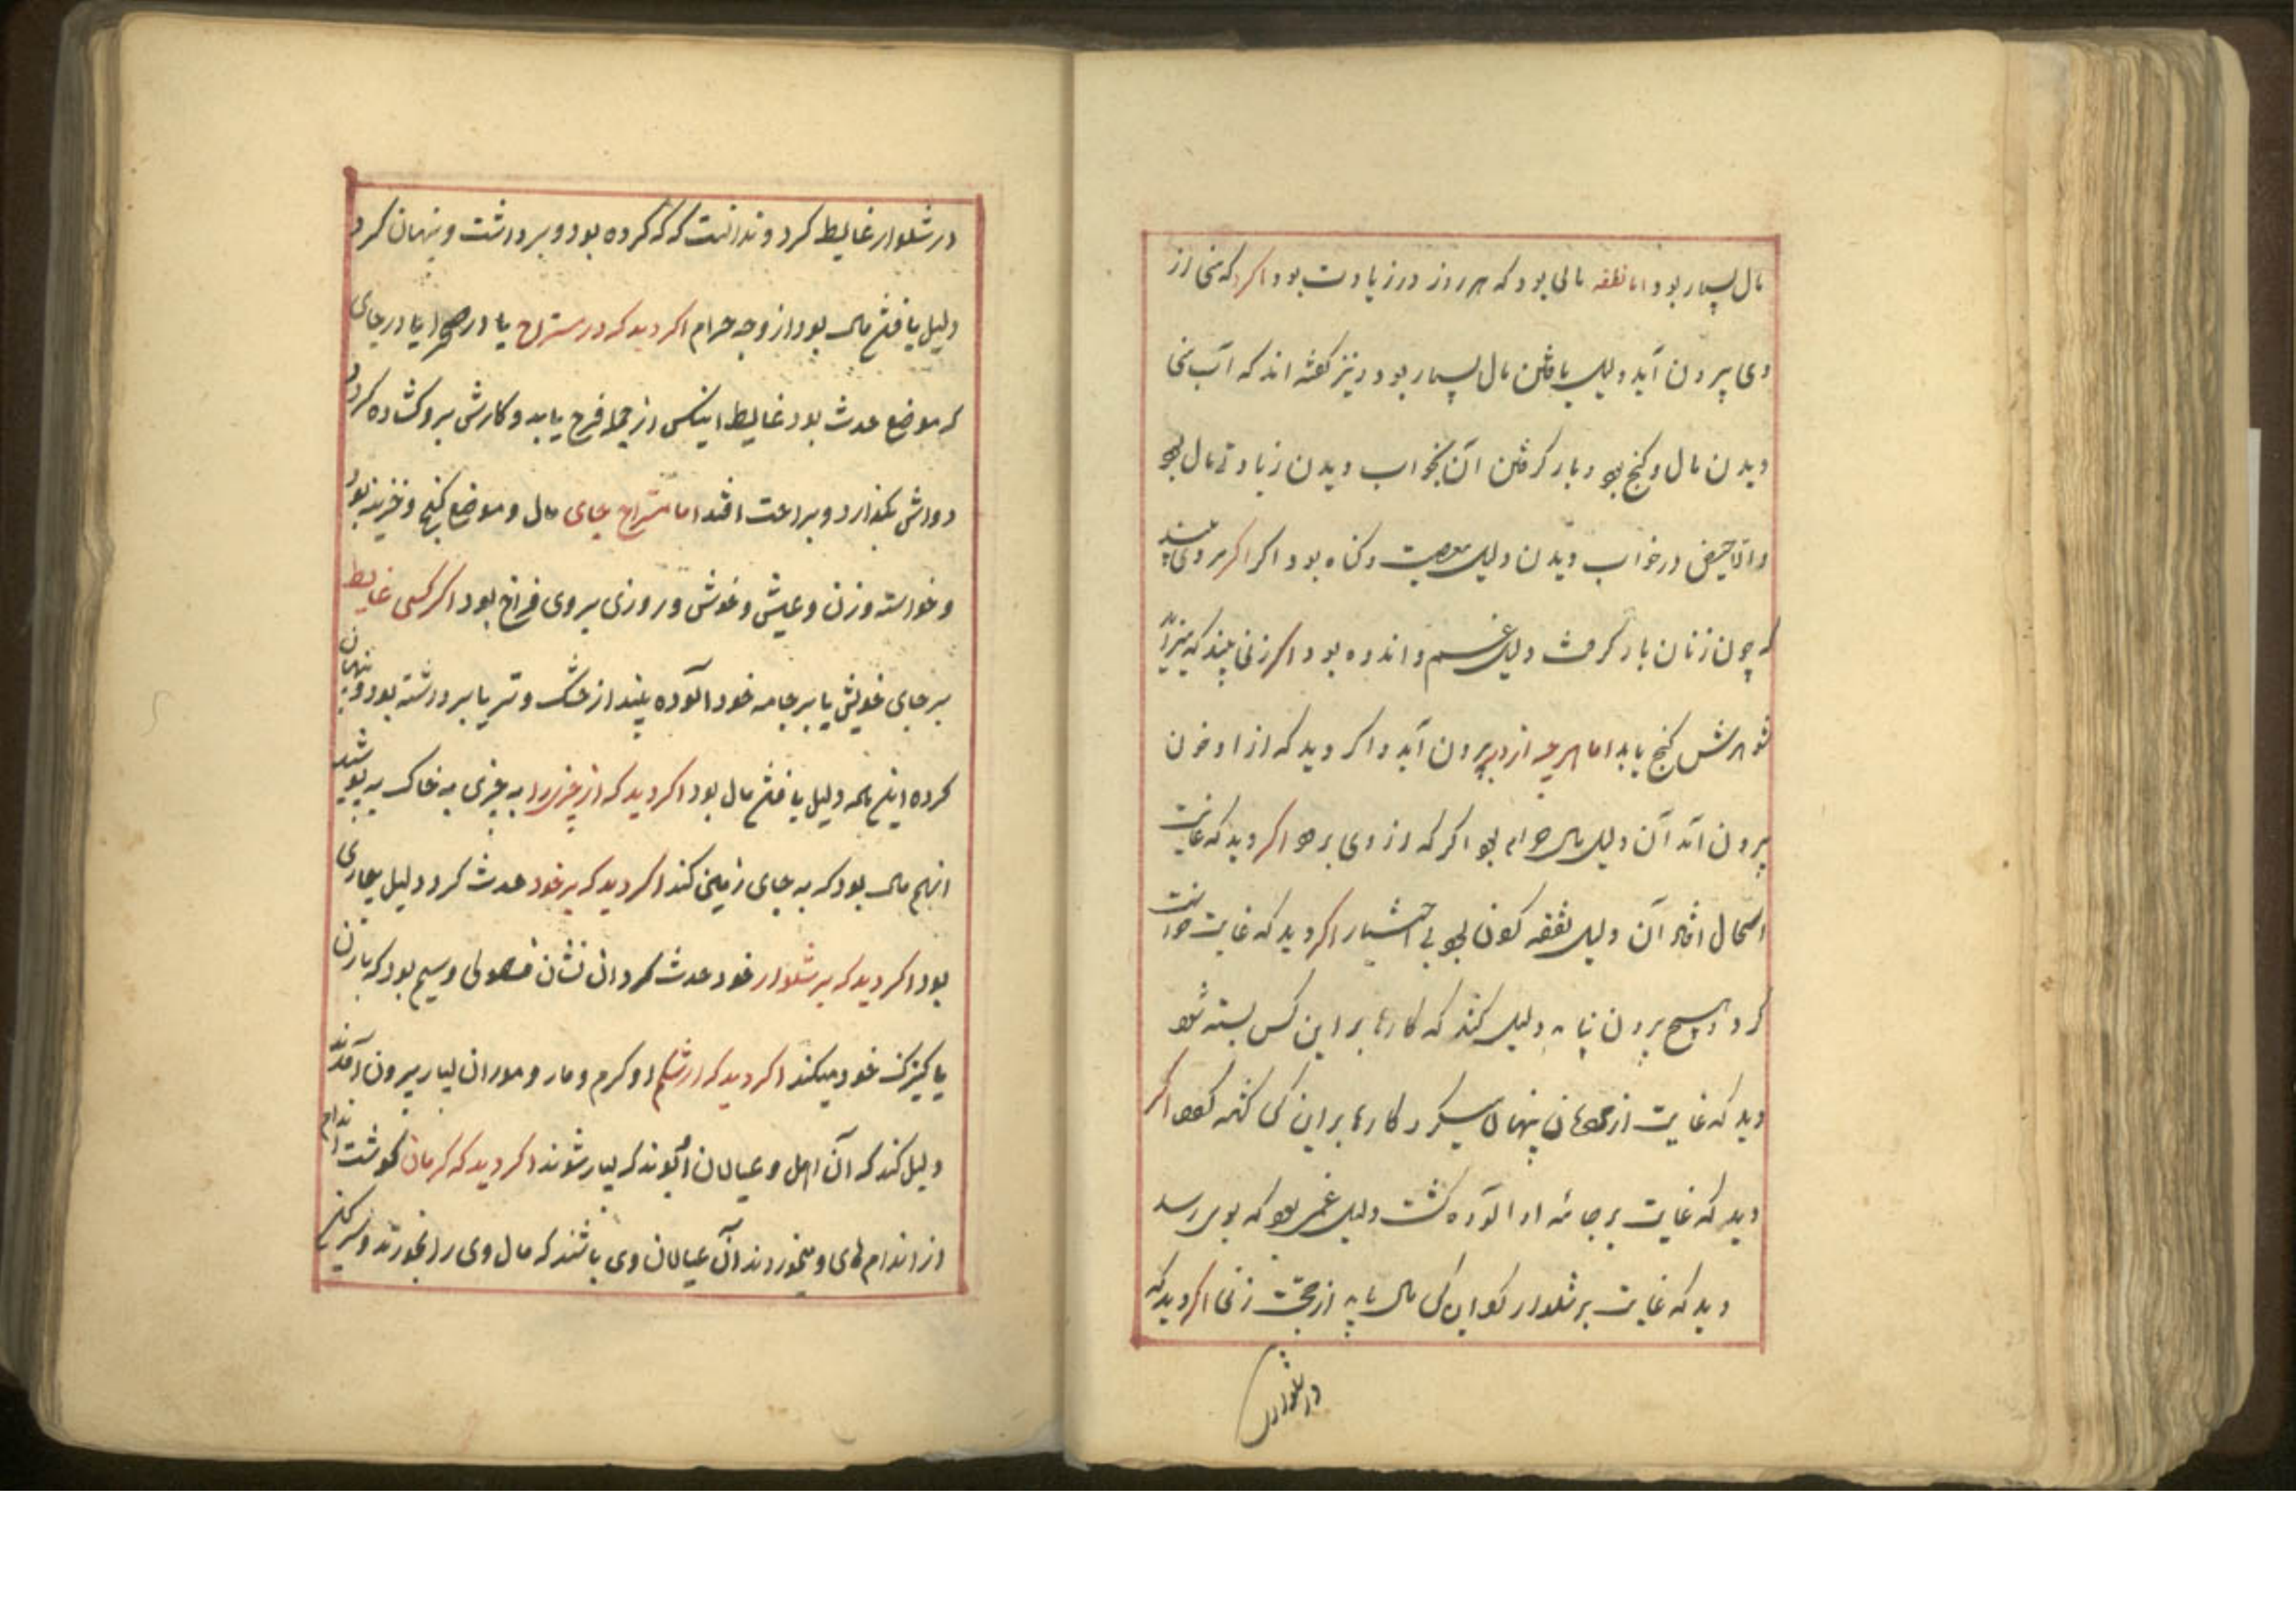 مال بسیار بود اما نطفه مالی بود که هر روز در زیادت بود اکر دید که منی از
وی بیرون آید دلیل یافتن مال بسیار بود و نیز کفته اند که آب منی
دیدن مال و کنج بود و بار کرفتن آن بخواب دیدن زیادتی مال بود
واما حیض در خواب دیدن دلیل معصیت و کناه بود اکر مردی بیند
که چون زنان بار کرفت دلیل غم و اندوه بود اکر زنی بیند که
شوهرش کنج یابد اما هرچه از دبر بیرون آید و اکر دید که از او خون
بیرون آمد آن دلیل مال حرام بود اکر که از وی برود اکر دید که غایت
اسهال افتاد آن دلیل نفقه کردن بود بی اختیار اکر دید که غایت خواست
کرد و هیچ برون نیامد دلیل کند که کارها بر این کس بسته شود
دید که غایت از مردمان پنهان میکرد کارها بر این کس کشاده کردد اکر
دید که غایت بر جامه او آلوده کشت دلیل غمی بود که بوی رسد
دید که غایت بر شلوار کرد این کس مال یابد از جهت زنی اکر دید که
در شلوارش
در شلوار غایط کرد و ندانست که که کرده بود و برداشت و پنهان کرد
دلیل یافتن مال بود از وجه حرام اکر دید که در مستراح یا در صحرا یا در جای
که موضع حدث بود غایط اینکس از جمله فرح یابد و کارش برو کشاده کردد
دوامش بکذارد و براحت افتد اما مستراح جای مال و موضع کنج و خزینه بود
و خواسته و زن و عیش و خوش و روزی بر وی فراخ بود اکر کسی غایط
بر جای خویش یا بر جامه خود آلوده بیند از خشک و تر یا برداشته بود و پنهان
کرده اینهمه دلیل یافتن مال بود اکر دید که از چیزی را به چیزی به خاک بپوشید
انهم مال بود که به جای زمین کند اکر دید که بر خود حدث کرد دلیل بیماری
بود اکر دید که بر شلوار خود حدث کرد ان نشان فضولی و سیم بود که بازن
یا کنیزک خود میکند اکر دید که از شکم او کرم و مار و موران بسیار بیرون آمدند
دلیل کند که آن اهل و عیالان که بسیار شوند اکر دید که کرمان کوشت اندام
از اندام های او میخوردند آن عیالان وی باشند که مال وی را بخورند و